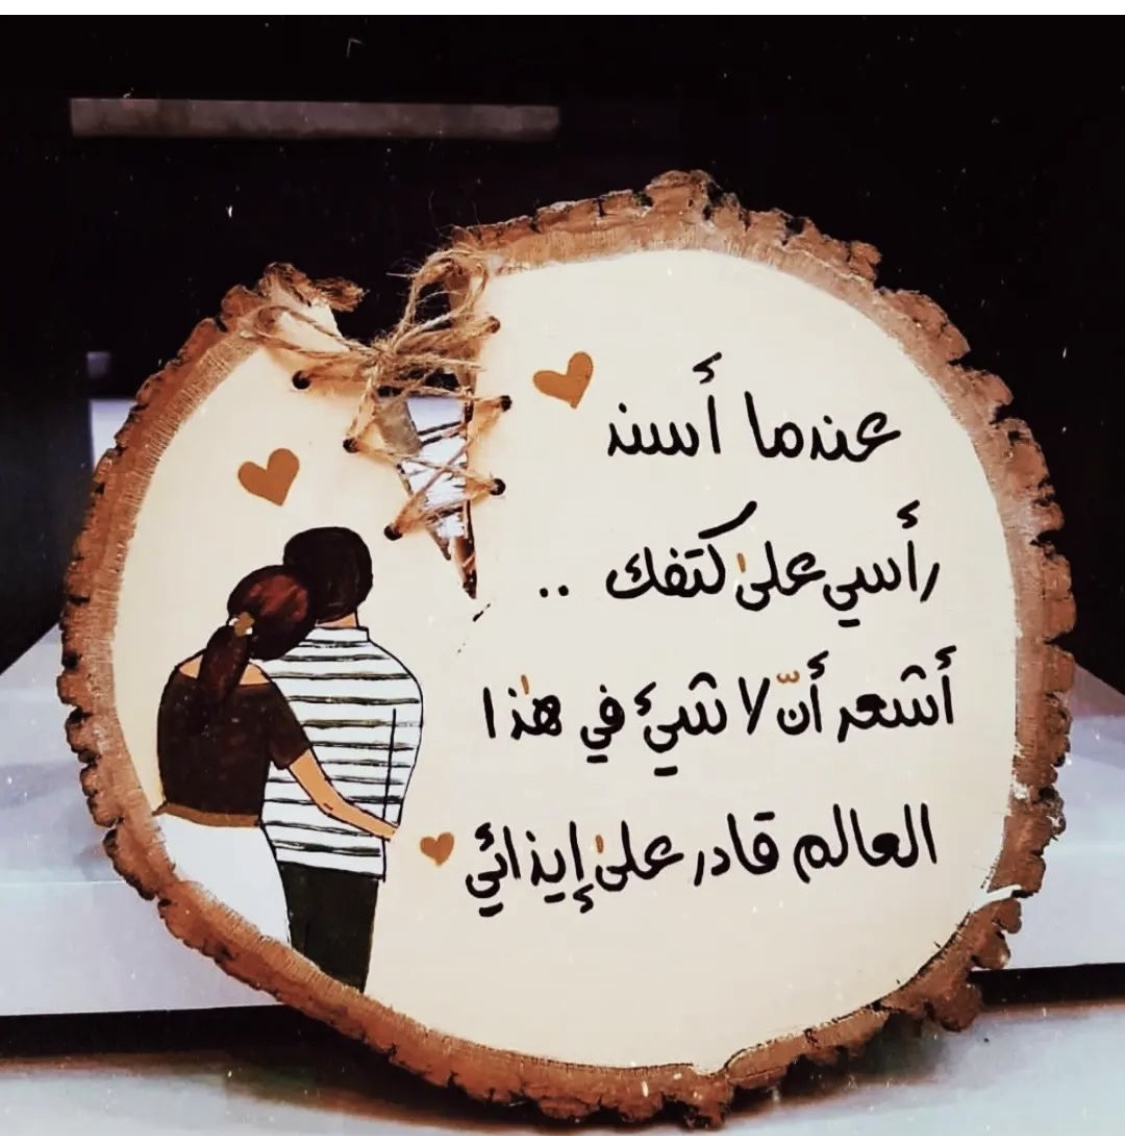 عندما أسند
رأسي على كتفك ..
أشعر أنّ لا شيئ في هذا
العالم قادر على إيذائي